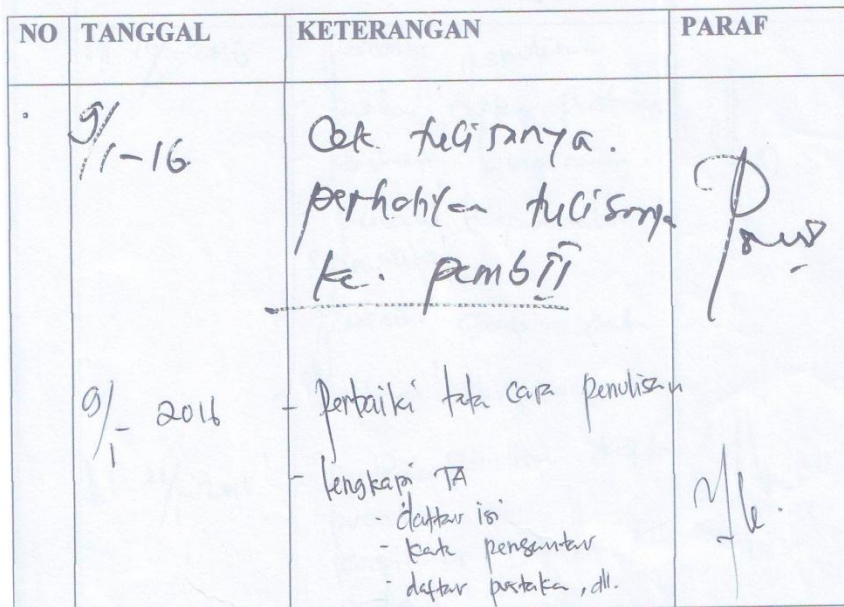 NO TANGGAL KETERANGAN PARAF
9/1-16 Cek tulisanya.
perhatikan tulisanya
ke. pemb II
9/1- 2016 - Perbaiki tata cara penulisan
- lengkapi TA
daftar isi
- kata pengantar
- daftar pustaka, dll.